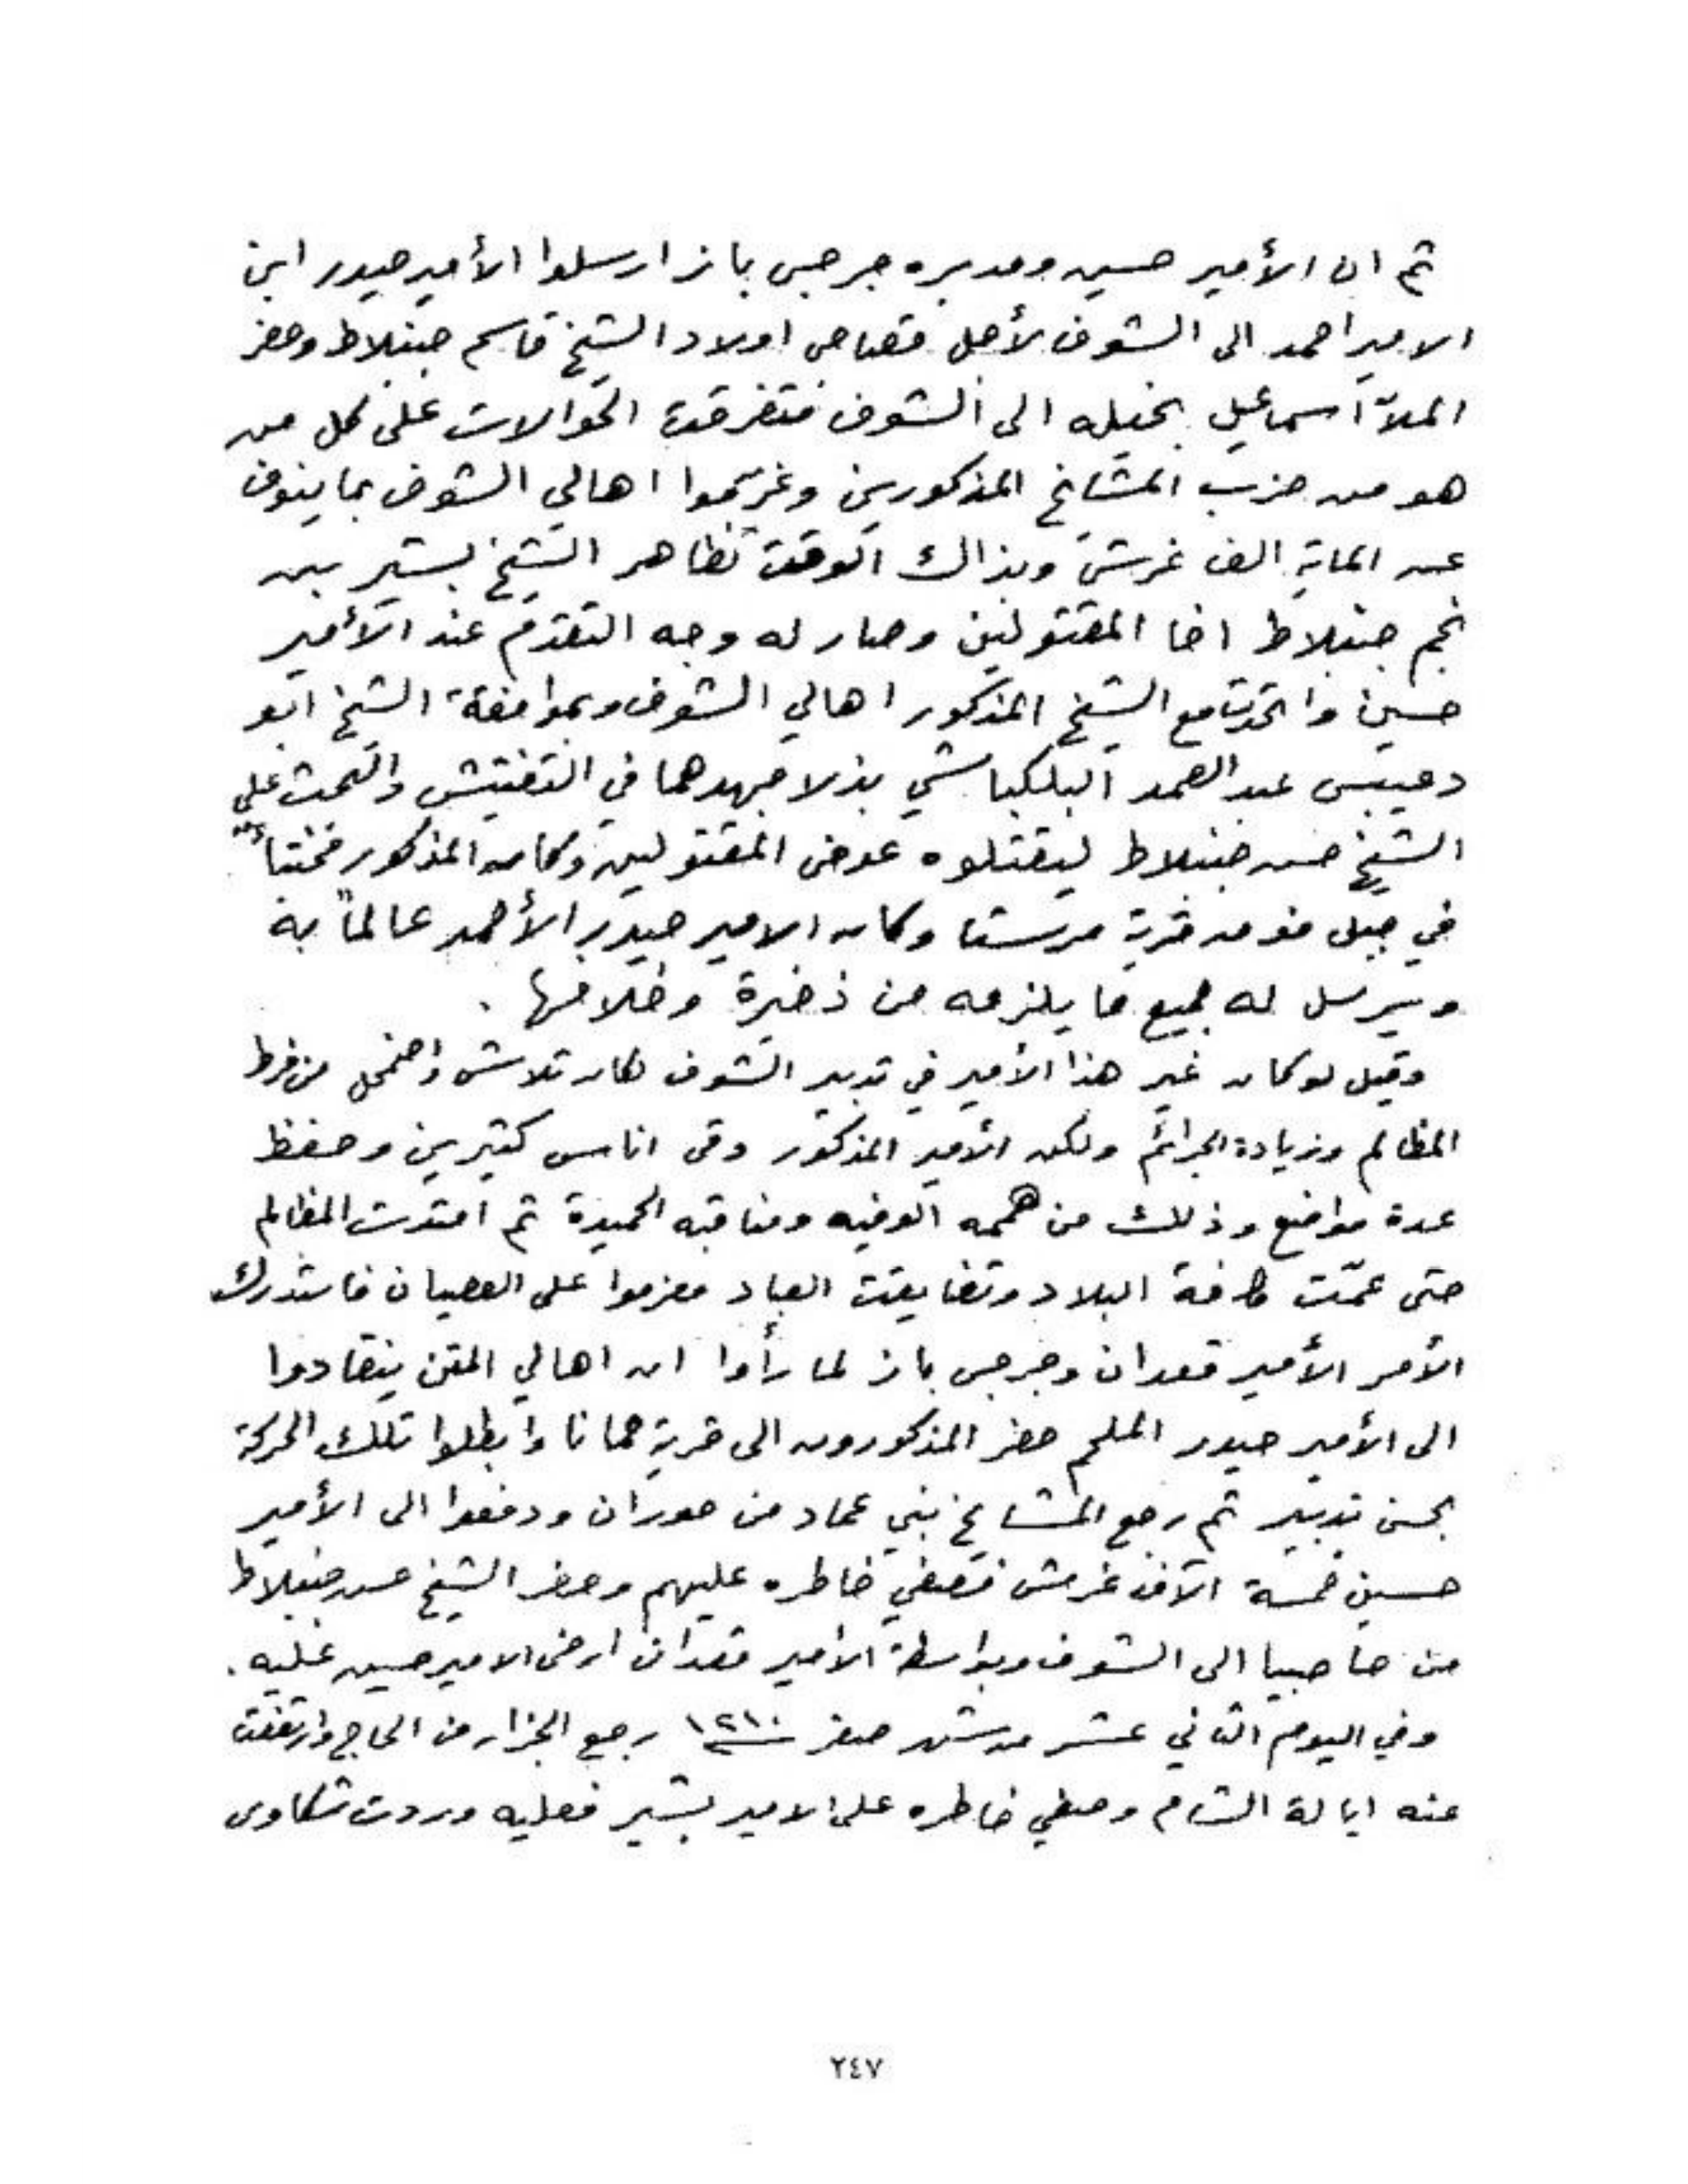 ثم ان الأمير حسين ومدبره جرجس باز ارسلوا الأمير حيدر ابن
الامير احمد الى الشوف لأجل قصاص اولاد الشيخ قاسم جنبلاط وحضر
الملّا اسماعيل بخيله الى الشوف فتفرقت الحوالات على كل من
هو من حزب المشايخ المذكورين وغرّموا اهالي الشوف بما ينوف
عن الماية الف غرش وبذاك الوقت تظاهر الشيخ بشير بن
نجم جنبلاط اخا المقتولين وصار له وجه التقدّم عند الأمير
حسين واتحدت مع الشيخ المذكور اهالي الشوف وبموافقة الشيخ ابو
دعيبس عبد الصمد البلكباشي بذلا جهدهما في التفتيش والبحث على
الشيخ حسن جنبلاط ليقتلوه عوض المقتولين وكان المذكور مختبأً
في جبل فوق قرية مرستا وكان الامير حيدر الأحمد عالماً به
ويرسل له جميع ما يلزمه من ذخيرة وخلافها .
وقيل لو كان غير هذا الأمير في تدبير الشوف لكان تلاشى واضمحل من فرط
المظالم وزيادة الجرائم ولكن الأمير المذكور وقى اناس كثيرين وحفظ
عدة مواضع وذلك من هممه الوفيه ومناقبه الحميدة ثم امتدت المظالم
حتى عمّت كافة البلاد وتضايقت العباد فعزموا على العصيان فاستدرك
الأمر الأمير قعدان وجرجس باز لما رأوا ان اهالي المتن ينقادوا
الى الأمير حيدر الملحم حضر المذكورون الى قرية حمانا وابطلوا تلك الحركة
بحسن تدبير ثم رجع المشايخ بني عماد من حوران ودفعوا الى الأمير
حسين خمسة الآف غرش فصفي خاطره عليهم وحضر الشيخ حسن جنبلاط
من حاصبيا الى الشوف وبواسطة الأمير قعدان ارضى الامير حسين عليه .
وفي اليوم الثاني عشر من شهر صفر سنة ١٢١٠ رجع الجزار من الحاج وارتفعت
عنه ايالة الشام وصفي خاطره على الامير بشير فعليه وردت شكاوى
٢٤٧